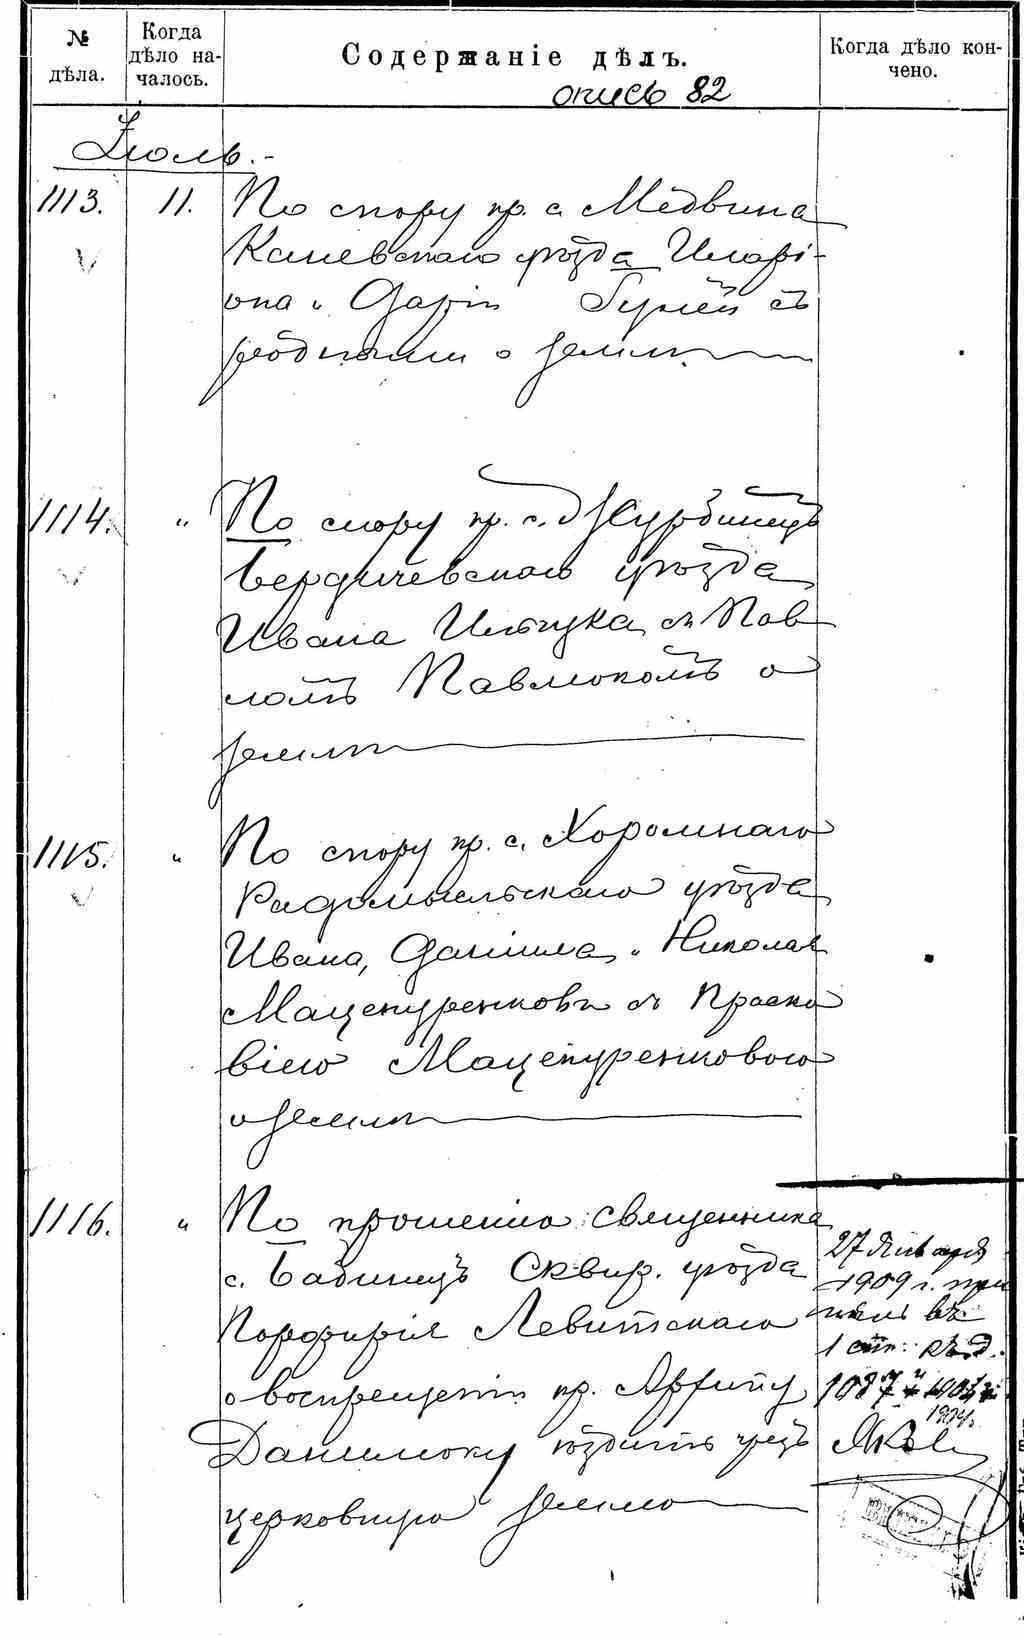 № дѣла.
Когда дѣло на-
чалось.
Содержаніе дѣлъ.
Когда дѣло кон-
чено.
опись 82
Іюль.
1113. 11. По спору кр. с. Медвина
Каневскаго уѣзда Иларі-
она и Даріи Гулей съ
родными о землѣ
1114. " По спору кр. с. Журбинецъ
Бердичевскаго уѣзда
Ивана Ильчука съ Пав-
ломъ Павлюкомъ о
землѣ
1115. " По спору кр. с. Хоромнаго
Радомысльскаго уѣзда
Ивана, Даніила и Николая
Мацепуренковъ съ Праско
віею Мацепуренковою
о землѣ
1116. " По прошенію священника
с. Бабинецъ Сквир. уѣзда
Порфирія Левитскаго
о воспрещеніи кр.
Данилюку ѣздить чрезъ
церковную землю
27 Января
1909 г. при
въ
1 ст. къ д.
1087
1904 г.